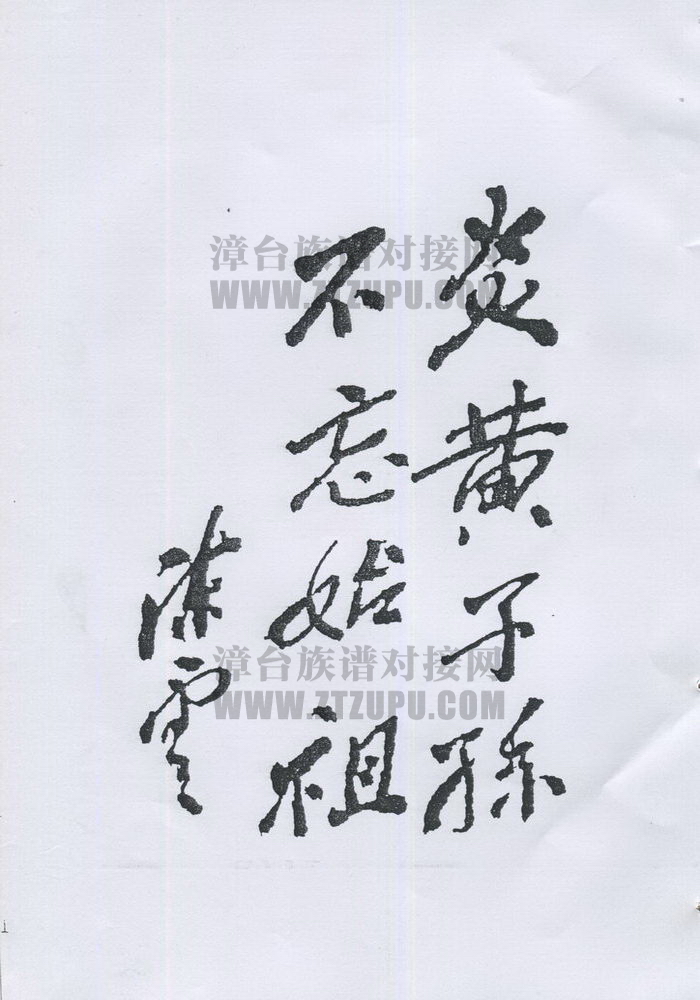 炎黄子孫
不忘始祖
陈雲
漳台族谱对接网
WWW.ZTZUPU.COM
漳台族谱对接网
WWW.ZTZUPU.COM
1